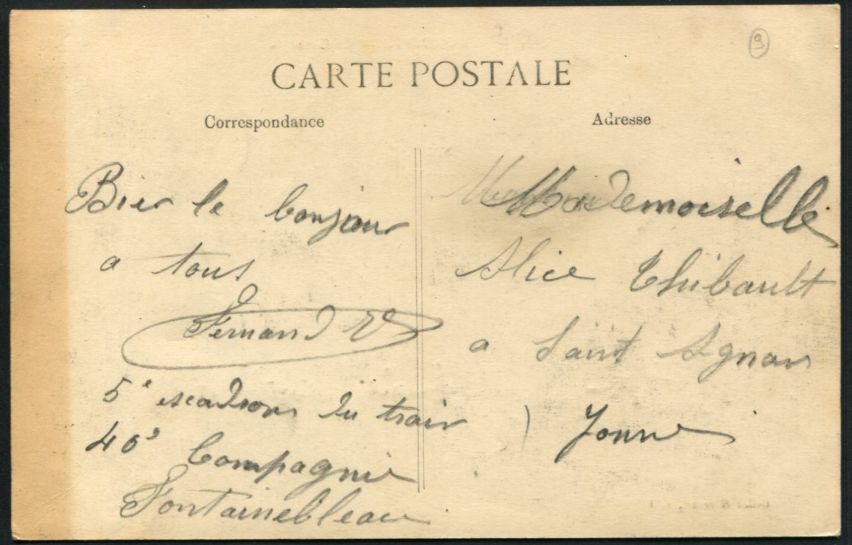 9
CARTE POSTALE
Correspondance
Adresse
Bien le bonjour
a tous
Fernand
5e escadron du train
40e Compagnie
Fontainebleau
Mademoiselle
Alice Thibault
a Saint Agnan
Yonne